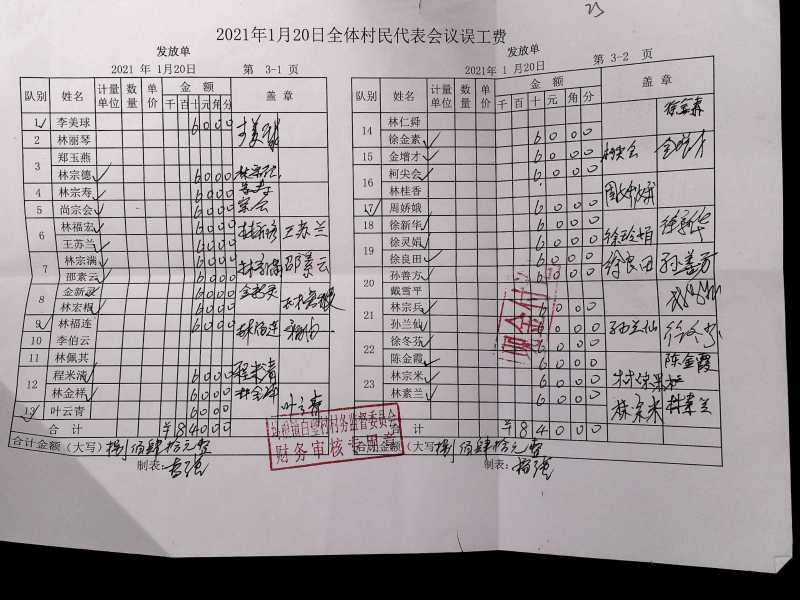 2021年1月20日全体村民代表会议误工费
发放单
2021 年 1月20日 第 3-1 页
队别 姓名 计量单位 数量 单价 金额 盖章
千 百 十 元 角 分
1 李美球 6 0 0 0
2 林丽琴
3 郑玉燕
林宗德 6 0 0 0
4 林宗寿 6 0 0 0
5 尚宗会 6 0 0 0
6 林福宏 6 0 0 0
王苏兰 6 0 0 0 王苏兰
7 林宗满 6 0 0 0
邵素云 6 0 0 0 邵素云
8 金新灵 6 0 0 0
林宏根 6 0 0 0
9 林福连 6 0 0 0 林福连
10 李伯云
11 林佩其
12 程米清 6 0 0 0
林金祥 6 0 0 0
13 叶云青 6 0 0 0
合计 ¥ 8 4 0 0 0
合计金额(大写) 捌佰肆拾元整
制表:
发放单
2021年 1 月20日 第 3-2 页
队别 姓名 计量单位 数量 单价 金额 盖章
千 百 十 元 角 分
14 林仁舜
徐金素 6 0 0 0
15 金增才 6 0 0 0 金增才
16 柯尖会 6 0 0 0 柯尖会
林桂香
17 周娇娥 6 0 0 0
18 徐新华 6 0 0 0 徐新华
19 徐灵娟 6 0 0 0
徐良田 6 0 0 0 徐良田
20 孙善方 6 0 0 0 孙善方
戴雪平
21 林宗兵 6 0 0 0
孙兰仙 6 0 0 0 孙兰仙
22 徐冬芬 6 0 0 0
陈金霞 6 0 0 0 陈金霞
23 林宗米 6 0 0 0 林宗米
林素兰 6 0 0 0 林素兰
计 ¥ 8 4 0 0 0
合计金额(大写) 捌佰肆拾元整
制表:
现金付讫
村务监督委员会
财务审核专用章